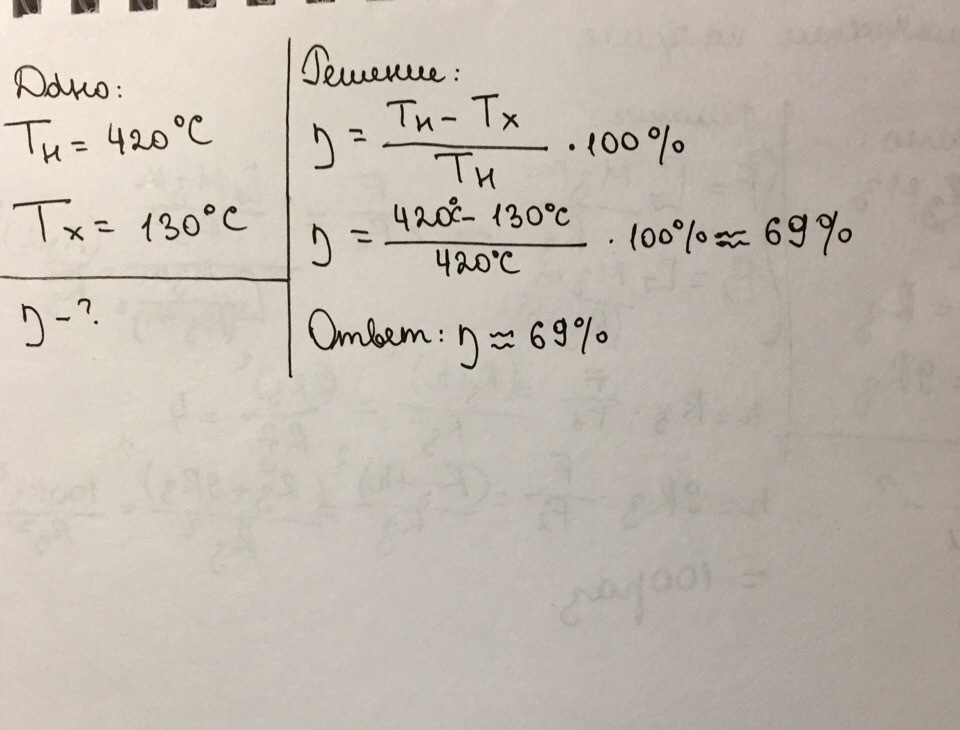 Дано:
Tн = 420°C
Tx = 130°C
η - ?
Решение:
η = (Tн - Tx) / Tн · 100%
η = (420°C - 130°C) / 420°C · 100% ≈ 69%
Ответ: η ≈ 69%